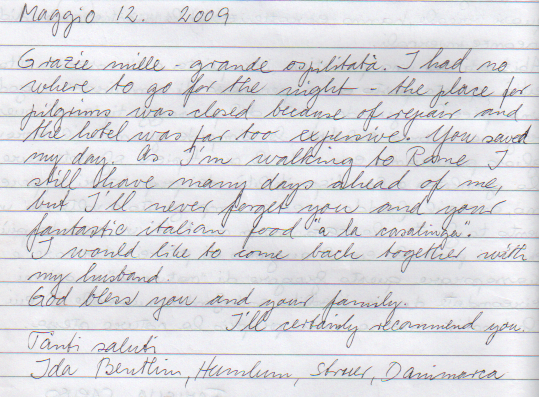 Maggio 12. 2009
Grazie mille - grande ospilitatà. I had no
where to go for the night - the place for
pilgrims was closed because of repair and
the hotel was far too expensive. You saved
my day. As I'm walking to Rome I
still have many days ahead of me,
but I'll never forget you and your
fantastic italian food "a la casalinga".
I would like to come back together with
my husband.
God bless you and your family.
I'll certainly recommend you.
Tanti saluti
Ida Benthin, Humlum, Struer, Danimarca